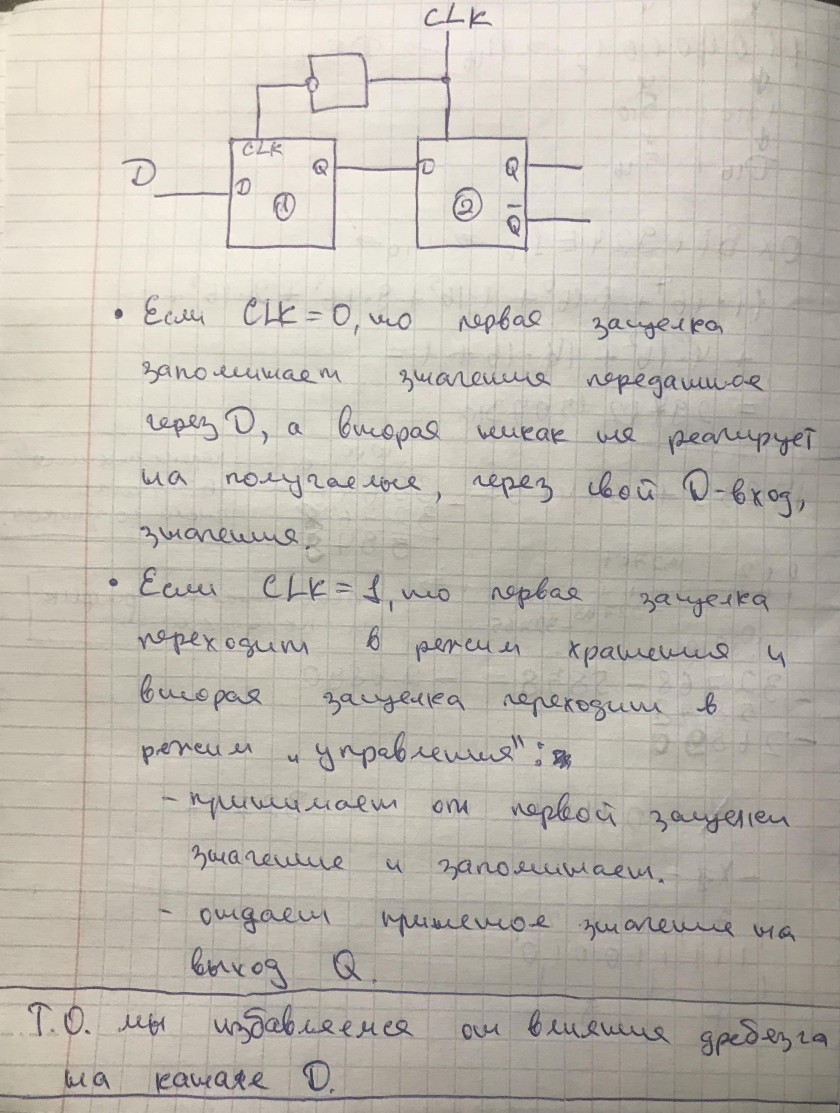 CLK
CLK
D
D
Q
①
D
②
Q
Q̅
• Если CLK = 0, то первая защелка
запоминает значения переданное
через D, а вторая никак не реагирует
на получаемые, через свой D-вход,
значения.
• Если CLK = 1, то первая защелка
переходит в режим хранения и
вторая защелка переходит в
режим „управления":
- принимает от первой защелки
значение и запоминает.
- отдает принетое значение на
выход Q.
Т.О. мы избавляемся от влияния дребезга
на канале D.